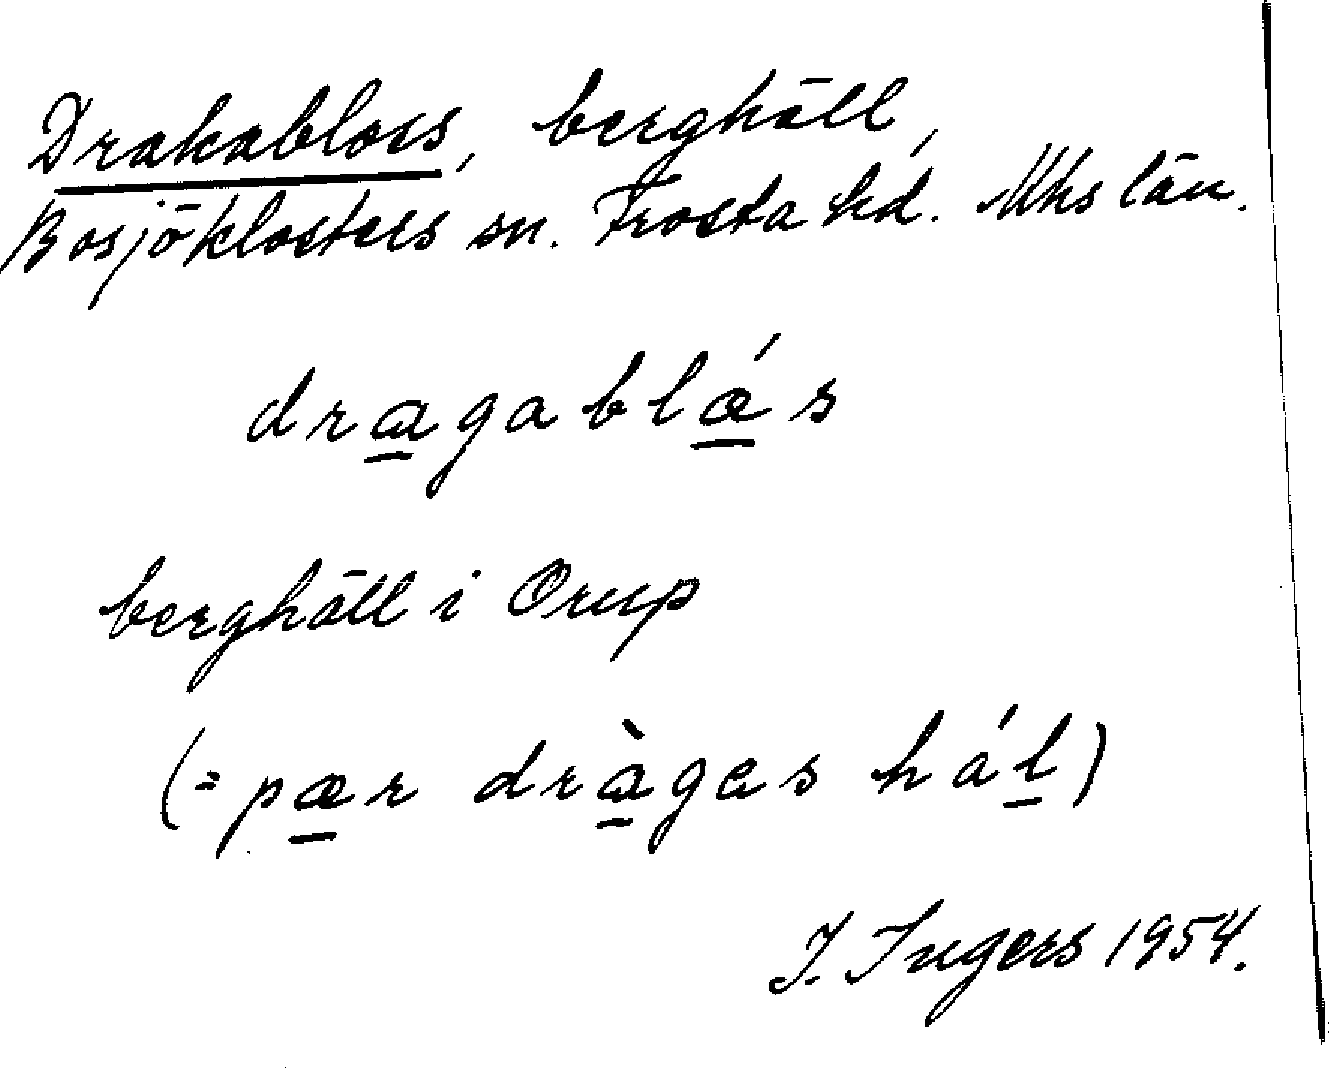 Drakabloss, berghäll,
Bosjöklosters sn. Frosta hd. Mhs län.
dragablǽs
berghäll i Orup
(= pær dràgas hál)
I. Ingers 1954.